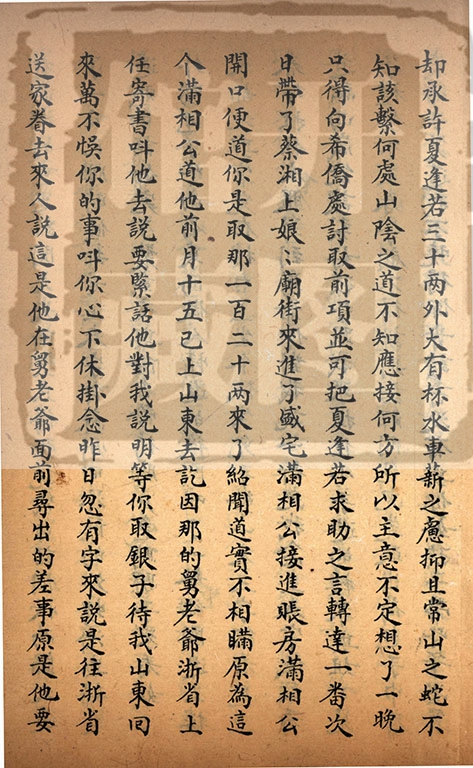 却承許夏逢若三十两外大有杯水車薪之慮抑且常山之蛇不
知該繫何處山陰之道不知應接何方所以主意不定想了一晚
只得向希僑處討取前項並可把夏逢若求助之言轉達一畨次
日帶了蔡湘上娘〻廟街來進了盛宅滿相公接進賬房滿相公
開口便道你是取那一百二十两來了紹聞道實不相瞞原為這
个滿相公道他前月十五已上山東去訖因那的舅老爺浙省上
任寄書呌他去說要緊話他對我說明等你取銀子待我山東回
來萬不悞你的事呌你心下休掛念昨日忽有字來說是往浙省
送家眷去來人說這是他在舅老爺面前尋出的差事原是他要